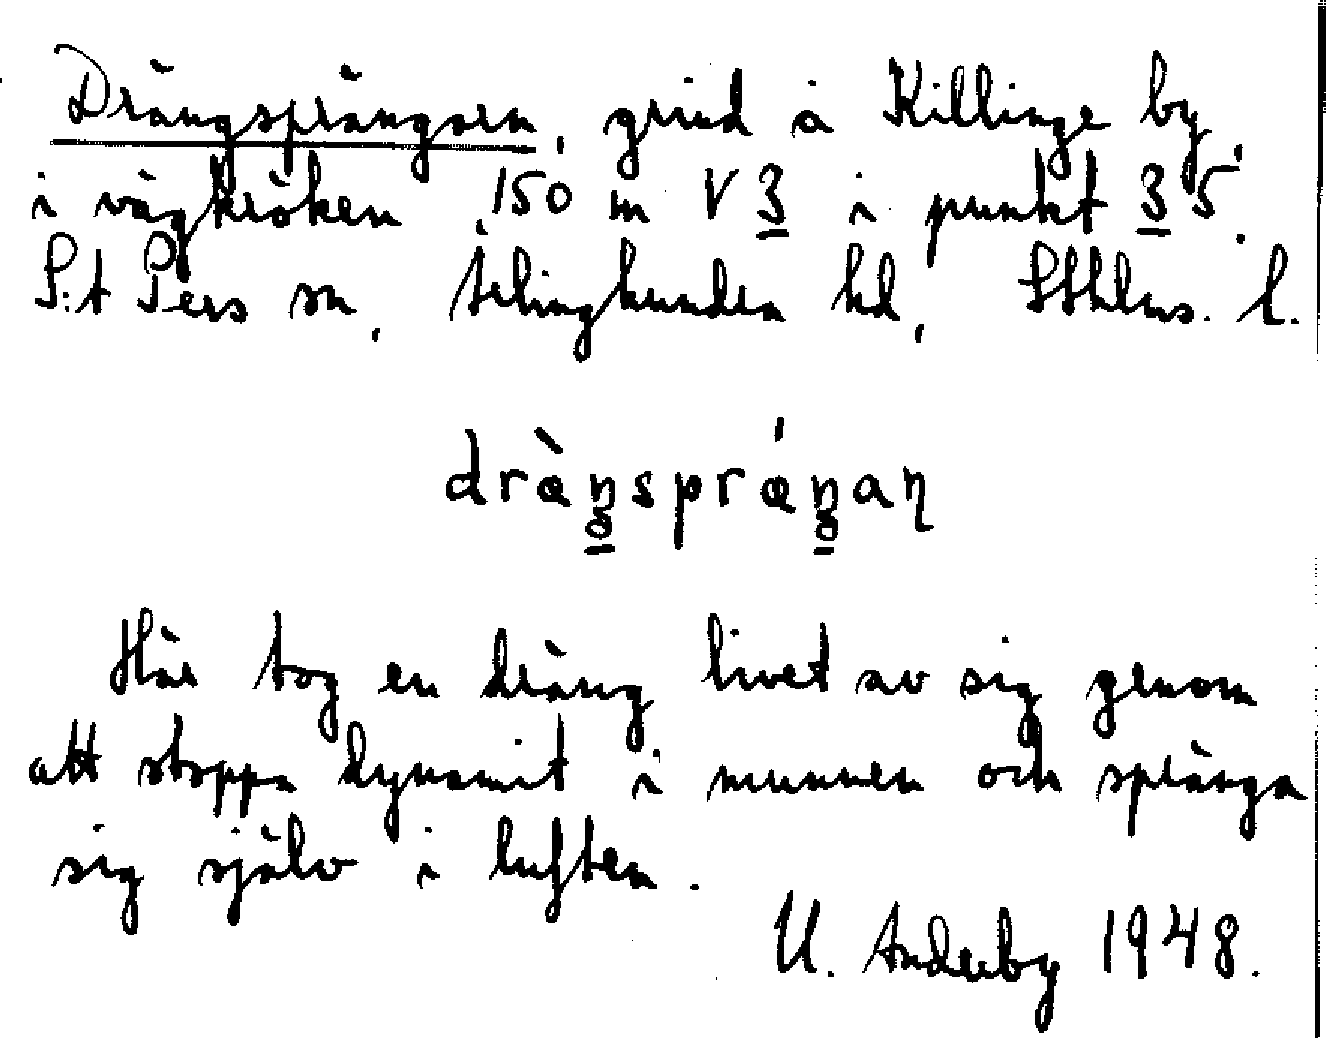 Drängsprängarn, grind å Killinge by,
i vägkröken, 150 m V 3 i punkt 35.
S:t Pers sn, Seminghundra hd, Sthlms. l.
dræ̀ŋsprǽŋaɳ
Här tog en dräng livet av sig genom
att stoppa dynamit i munnen och spränga
sig själv i luften.
U. Anderby 1948.